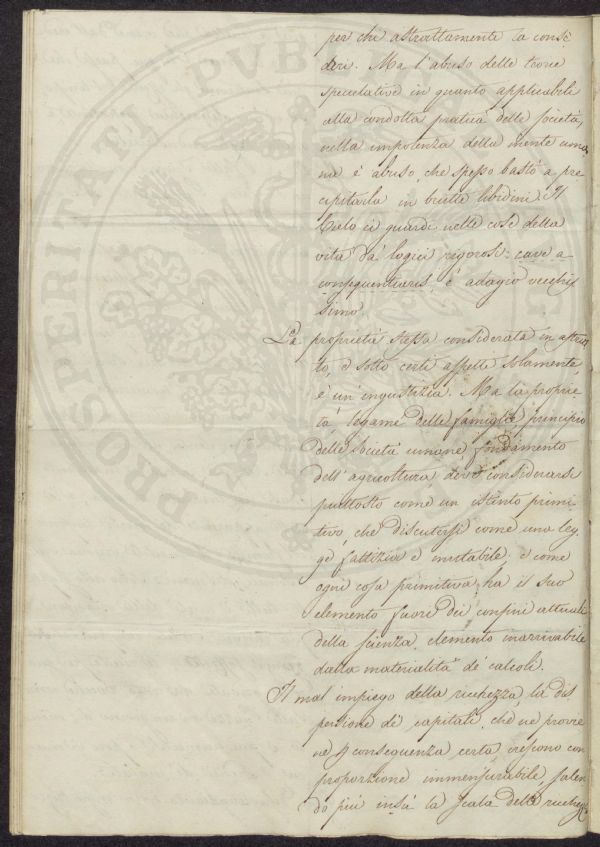 per chi astrattamente la consi
deri. Ma l'abuso delle teorie
speculative in quanto applicabile
alla condotta pratica delle società,
nella impotenza della mente uma
na è abuso, che spesso bastò a pre
cipitarla in brutte libidini. Il
Cielo ci guardi nelle cose della
vita da' logici rigorosi: cave a
consequentiariis, è adagio vecchis
simo.
La proprietà stessa considerata in astrat
to, e sotto certi aspetti solamente
è un'ingiustizia. Ma la proprie
tà legame delle famiglie, principio
delle società umane fondamento
dell'agricoltura, deve considerarsi
piuttosto come un istinto primi
tivo, che discutersi come una leg
ge fattizia e mutabile, e come
ogni cosa primitiva ha il suo
elemento fuori dei confini attuali
della scienza, elemento inarrivabile
dalla materialità de' calcoli.
Il mal impiego della ricchezza, la dis
persione de' capitali, che ne provie
ne p conseguenza certa, crescono con
proporzione immensurabile, salen
do più insù la scala delle ricchez
PROSPERITATI PUBLICAE